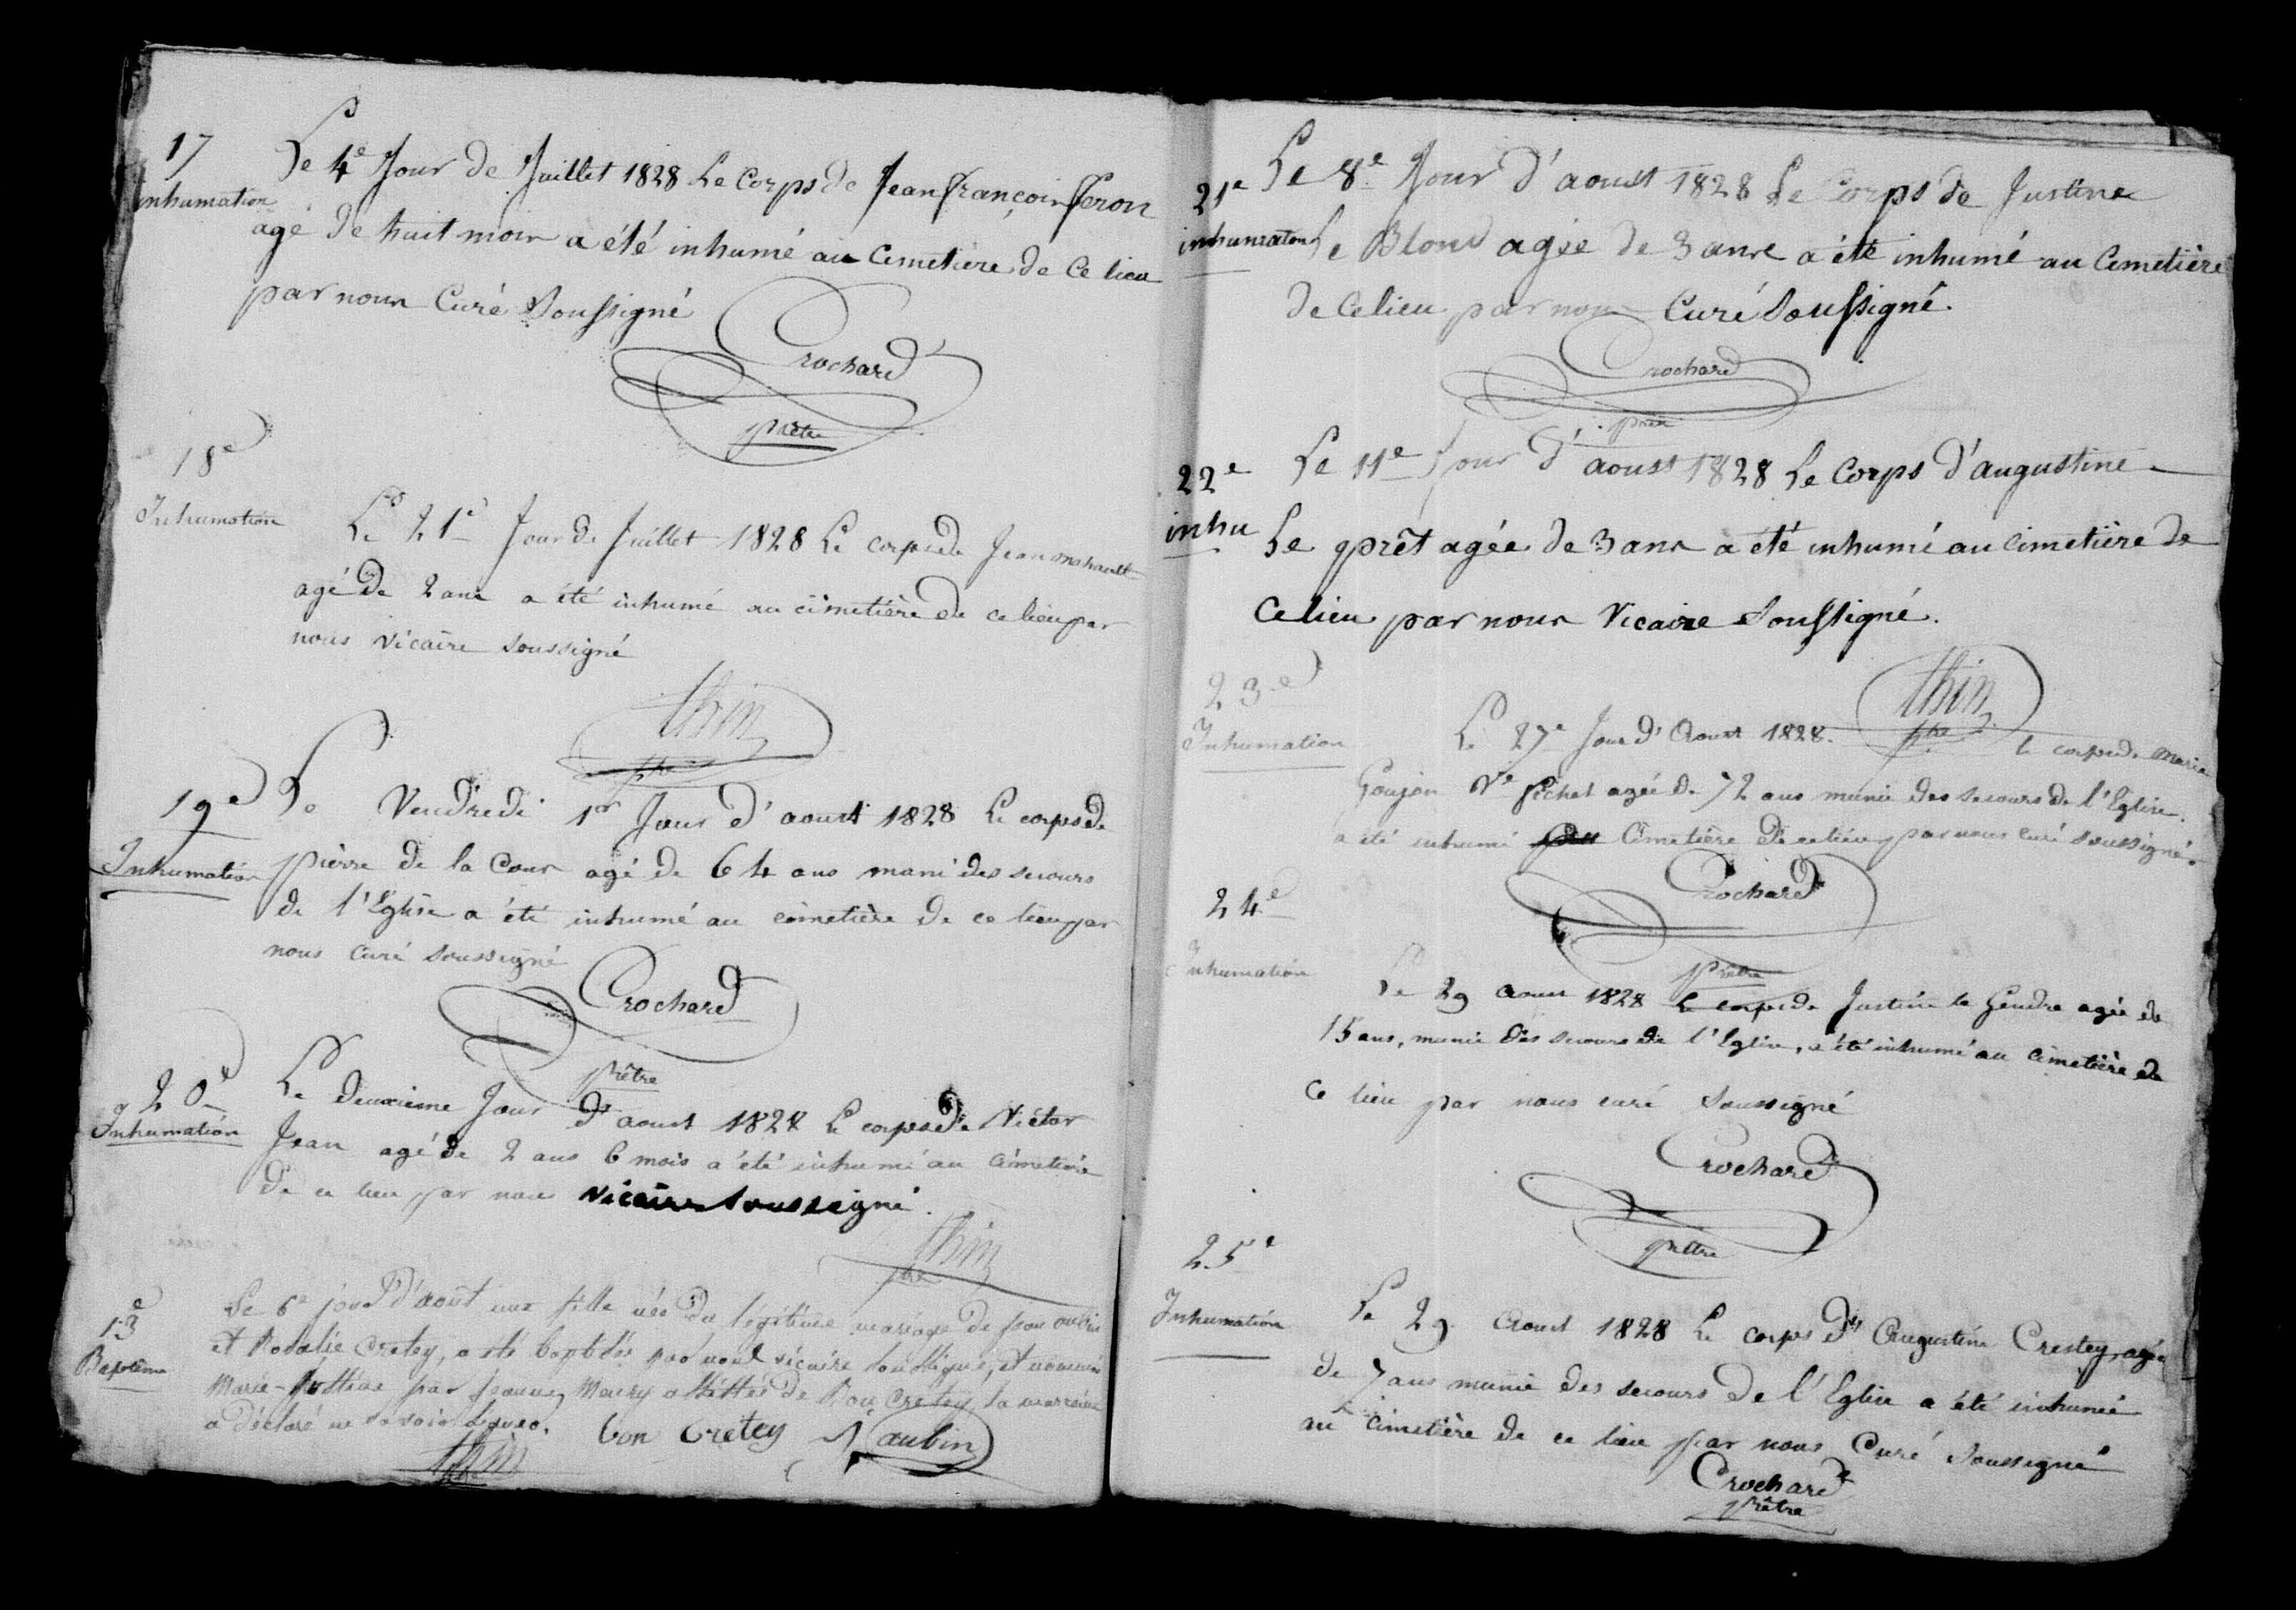 17
Inhumation
Le 4e Jour de Juillet 1828 Le Corps de Jean françois feron
agé de huit mois a été inhumé au Cemetière de Ce lieu
par nous Curé Soussigné
Crochard
prêtre
18e
Inhumation
Le 21e Jour de Juillet 1828 Le corps de Jean
agé de 2 ans a été inhumé au cimetière de ce lieu par
nous vicaire soussigné
thin
ptre
19e
Inhumation
Le Vendredi 1er Jour d'aoust 1828 Le corps de
pierre de la Cour agé de 64 ans muni des secours
de l'Eglise a été inhumé au cimetière de ce lieu par
nous curé soussigné
Crochard
prêtre
20e
Inhumation
Le deuxième Jour d'aoust 1828 Le corps de Victor
Jean agé de 2 ans 6 mois a été inhumé au cimetière
de ce lieu par nous vicaire soussigné.
thin
ptre
13e
Baptême
Le 6e jour d'août une fille née du légitime mariage de
et Rosalie Cretey, a été baptisée par nous vicaire soussigné, et nommée
Marie-Justine par Jeanne de Bon Cretey la marraine
a déclaré ne savoir signer.
bon Cretey J aubin
thin
ptre
21e
inhumation
Le 8e Jour d'aoust 1828 Le Corps de Justine
Le Blond agée de 3 ans a été inhumé au Cemetière
de Ce lieu par nous Curé Soussigné.
Crochard
prêtre
22e
inhu
Le 11e Jour d'aoust 1828 Le Corps d'augustine
Le prêt agée de 3 ans a été inhumé au Cimetière de
Ce lieu par nous Vicaire Soussigné.
thin
ptre
23e
Inhumation
Le 27e Jour d'Aoust 1828. le corps de marie
Goujon Ve Pichet agée de 72 ans munie des secours de l'Eglise.
a été inhumé Cimetière de ce lieu par nous curé soussigné.
Crochard
prêtre
24e
Inhumation
Le 29 aoust 1828 Le corps de Justine le Gendre agée de
15 ans, munie des secours de l'Eglise, a été inhumé au cimetière de
ce lieu par nous curé soussigné
Crochard
prêtre
25e
Inhumation
Le 29 Aoust 1828 Le corps de Augustine Crestey, agée
de 7 ans munie des secours de l'Eglise a été inhumée
au cimetière de ce lieu par nous Curé soussigné
Crochard
prêtre